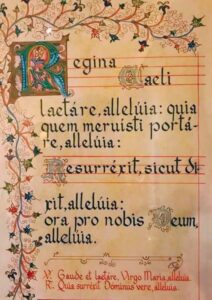 Regina
Caeli
laetáre, allelúia: quia
quem meruísti portá-
re, allelúia:
Resurréxit, sicut di-
xit, allelúia:
ora pro nobis Deum,
allelúia.
V. Gaude et laetáre, Virgo María, allelúia.
R. Quia surréxit Dóminus vere, allelúia.